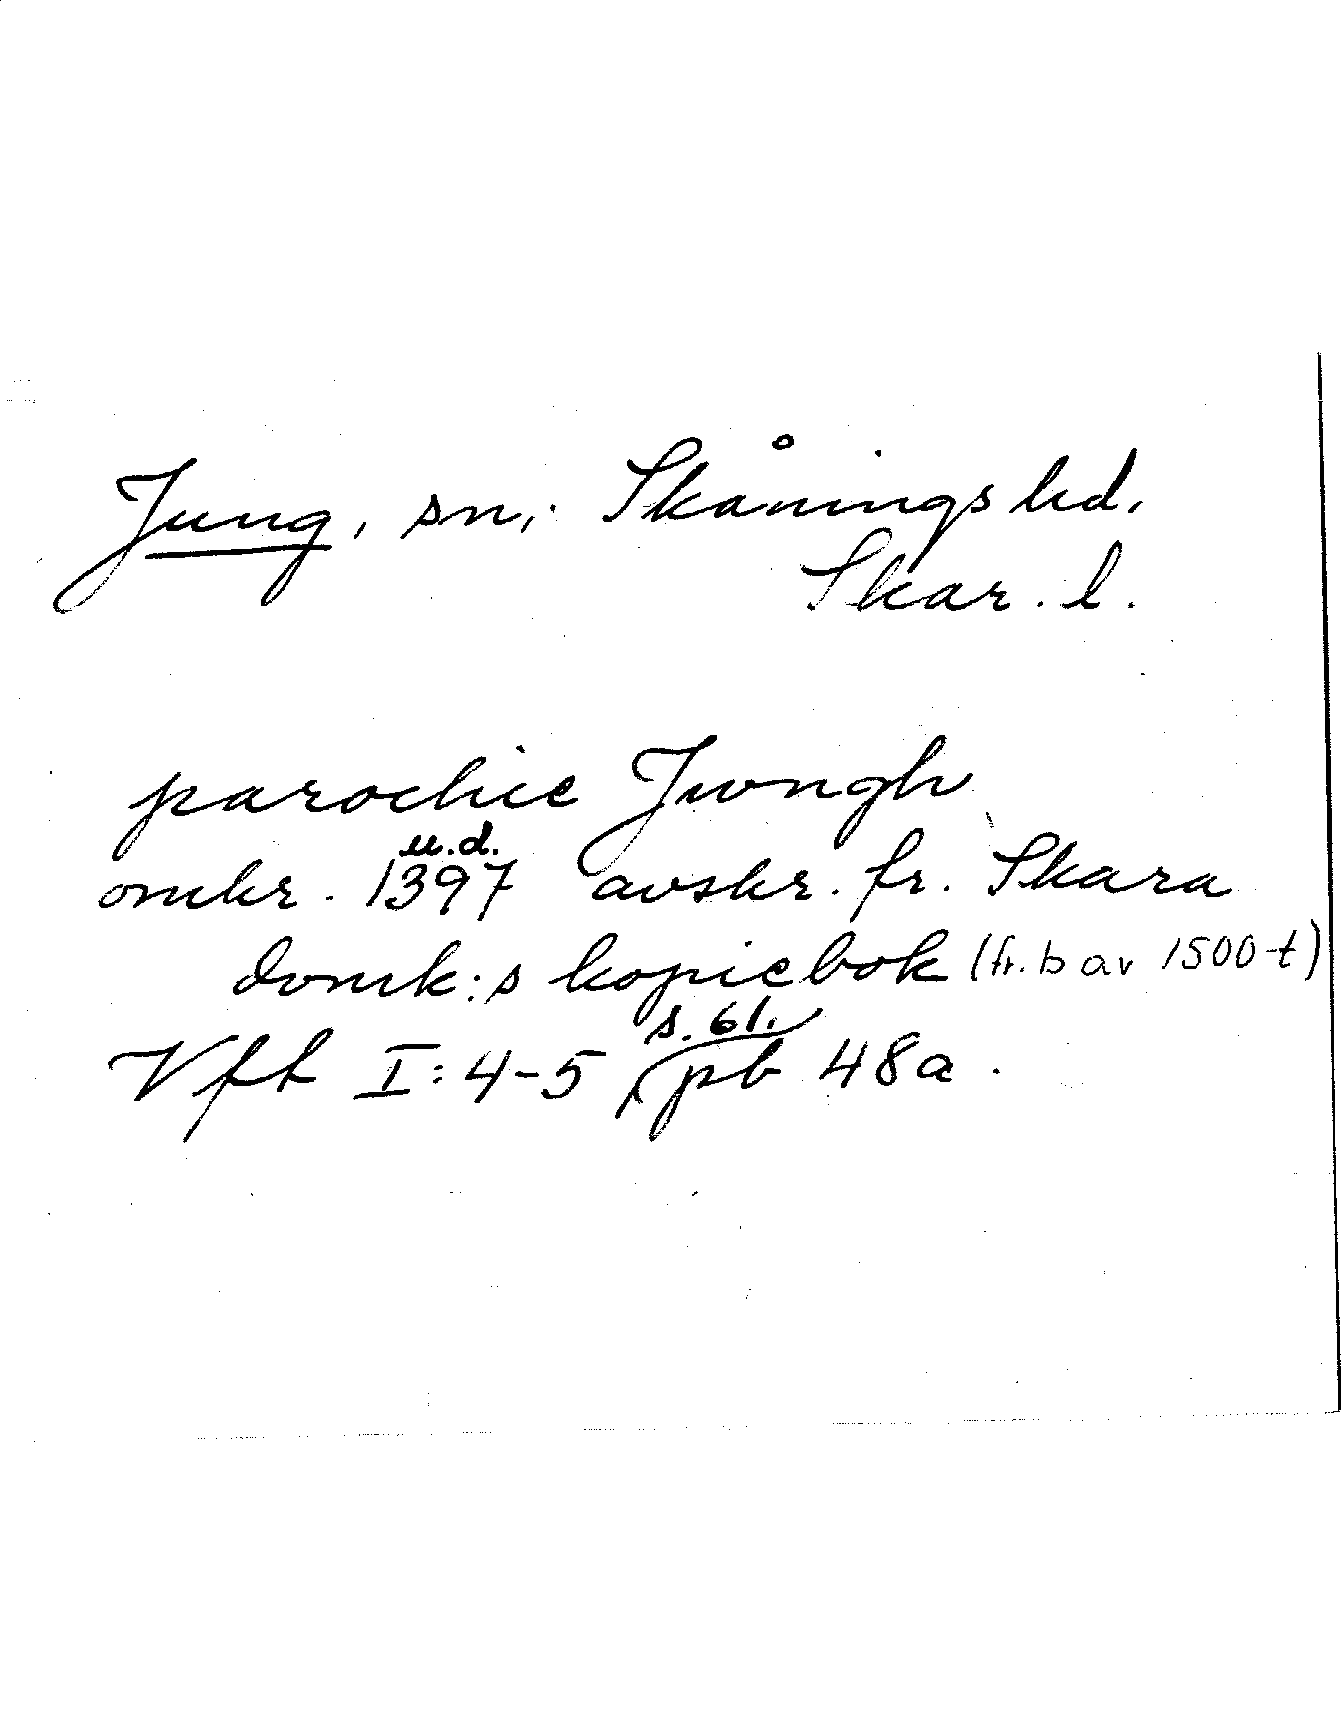 Jung, sn, Skånings hd,
Skar. l.
parochie Jwngh
u.d.
omkr. 1397 avskr. fr. Skara
domk:s kopiebok (fr. b av 1500-t)
s. 61.
Vft I:4-5, pb 48a.